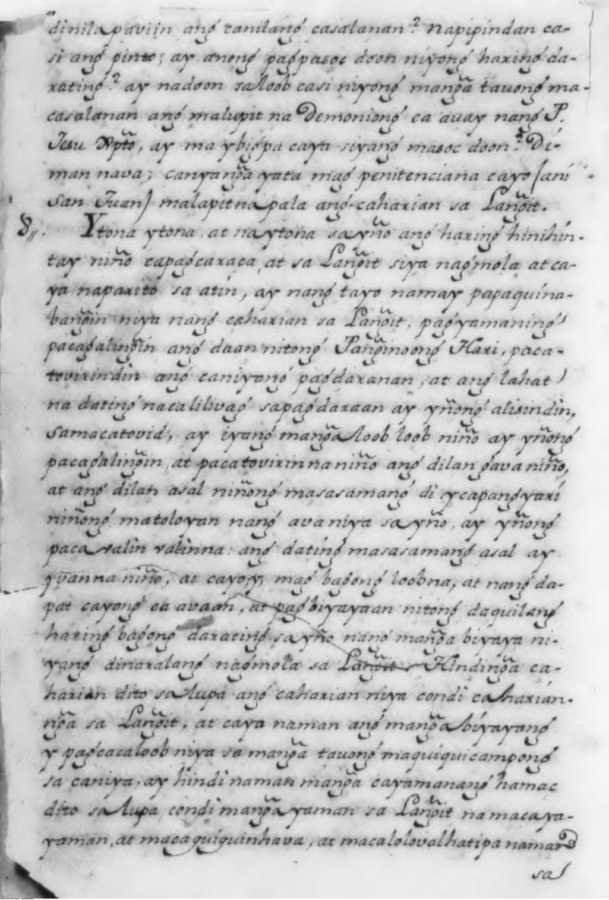 dinila paviin ang̃ canilang̃ casalanan? napipindan ca-
si ang̃ pinto; ay anong̃ pag̃pasoc doon niyong̃ haring̃ da-
rating̃? ay nadoon sa loob casi niyong̃ mang̃a tauong̃ ma-
casalanan ang̃ malupit na Demoniong̃ ca auay nang̃ P.
Jesu Xpto, ay may big̃pa caya siyang̃ masoc doon? Di-
man nava; canyang̃a yata mag̃ penitenciana cayo [ani
San Juan] malapitna pala ang̃ caharian sa Lang̃it.
8,,. Ytona ytona, at naytona sa yño ang̃ haring̃ hinihin-
tay niño capag̃caraca, at sa Lang̃it siya nag̃mola at ca-
ya naparito sa atin, ay nang̃ tayo namay papaquina-
bang̃in niya nang̃ caharian sa Lang̃it, pag̃yamaning̃
pacag̃aling̃in ang̃ daan nitong̃ Pang̃inoong̃ Hari, paca-
tovirindin ang̃ caniyang̃ pag̃daranan, at ang̃ lahat
na dating̃ nacalilivag̃ sapag̃daraan ay yñong̃ alisindin,
samacatovid, ay iyang̃ mang̃a loob loob niño ay yñong̃
pacag̃aling̃in, at pacatovirinna niño ang̃ dilan g̃ava niño,
at ang̃ dilan asal niñong̃ masasamang̃ di ycapang̃yari
niñong̃ matoloyan nang̃ ava niya sa yño, ay yñong̃
paca valin valinna: ang̃ dating̃ masasamang̃ asal ay
yvanna niño, at cayoy, mag̃ bag̃ong̃ loobna, at nang̃ da-
pat cayong̃ ca avaan, at pag̃biyayaan nitong̃ daquilang̃
haring̃ bag̃ong̃ darating̃ sa yño nang̃ mang̃a biyaya ni-
yang̃ dinaralang̃ nag̃mola sa Lang̃it. Hinding̃a ca-
harian dito sa lupa ang̃ caharian niya condi caharian-
ng̃a sa Lang̃it, at caya naman ang̃ mang̃a biyayang̃
y pag̃cacaloob niya sa mang̃a tauong̃ maquiquicampong̃
sa caniya, ay hindi naman mang̃a cayamanang̃ hamac
dito sa lupa, condi mang̃a yaman sa Lang̃it na macaya-
yaman, at macaquiquinhava, at macalolovalhatipa naman
sa